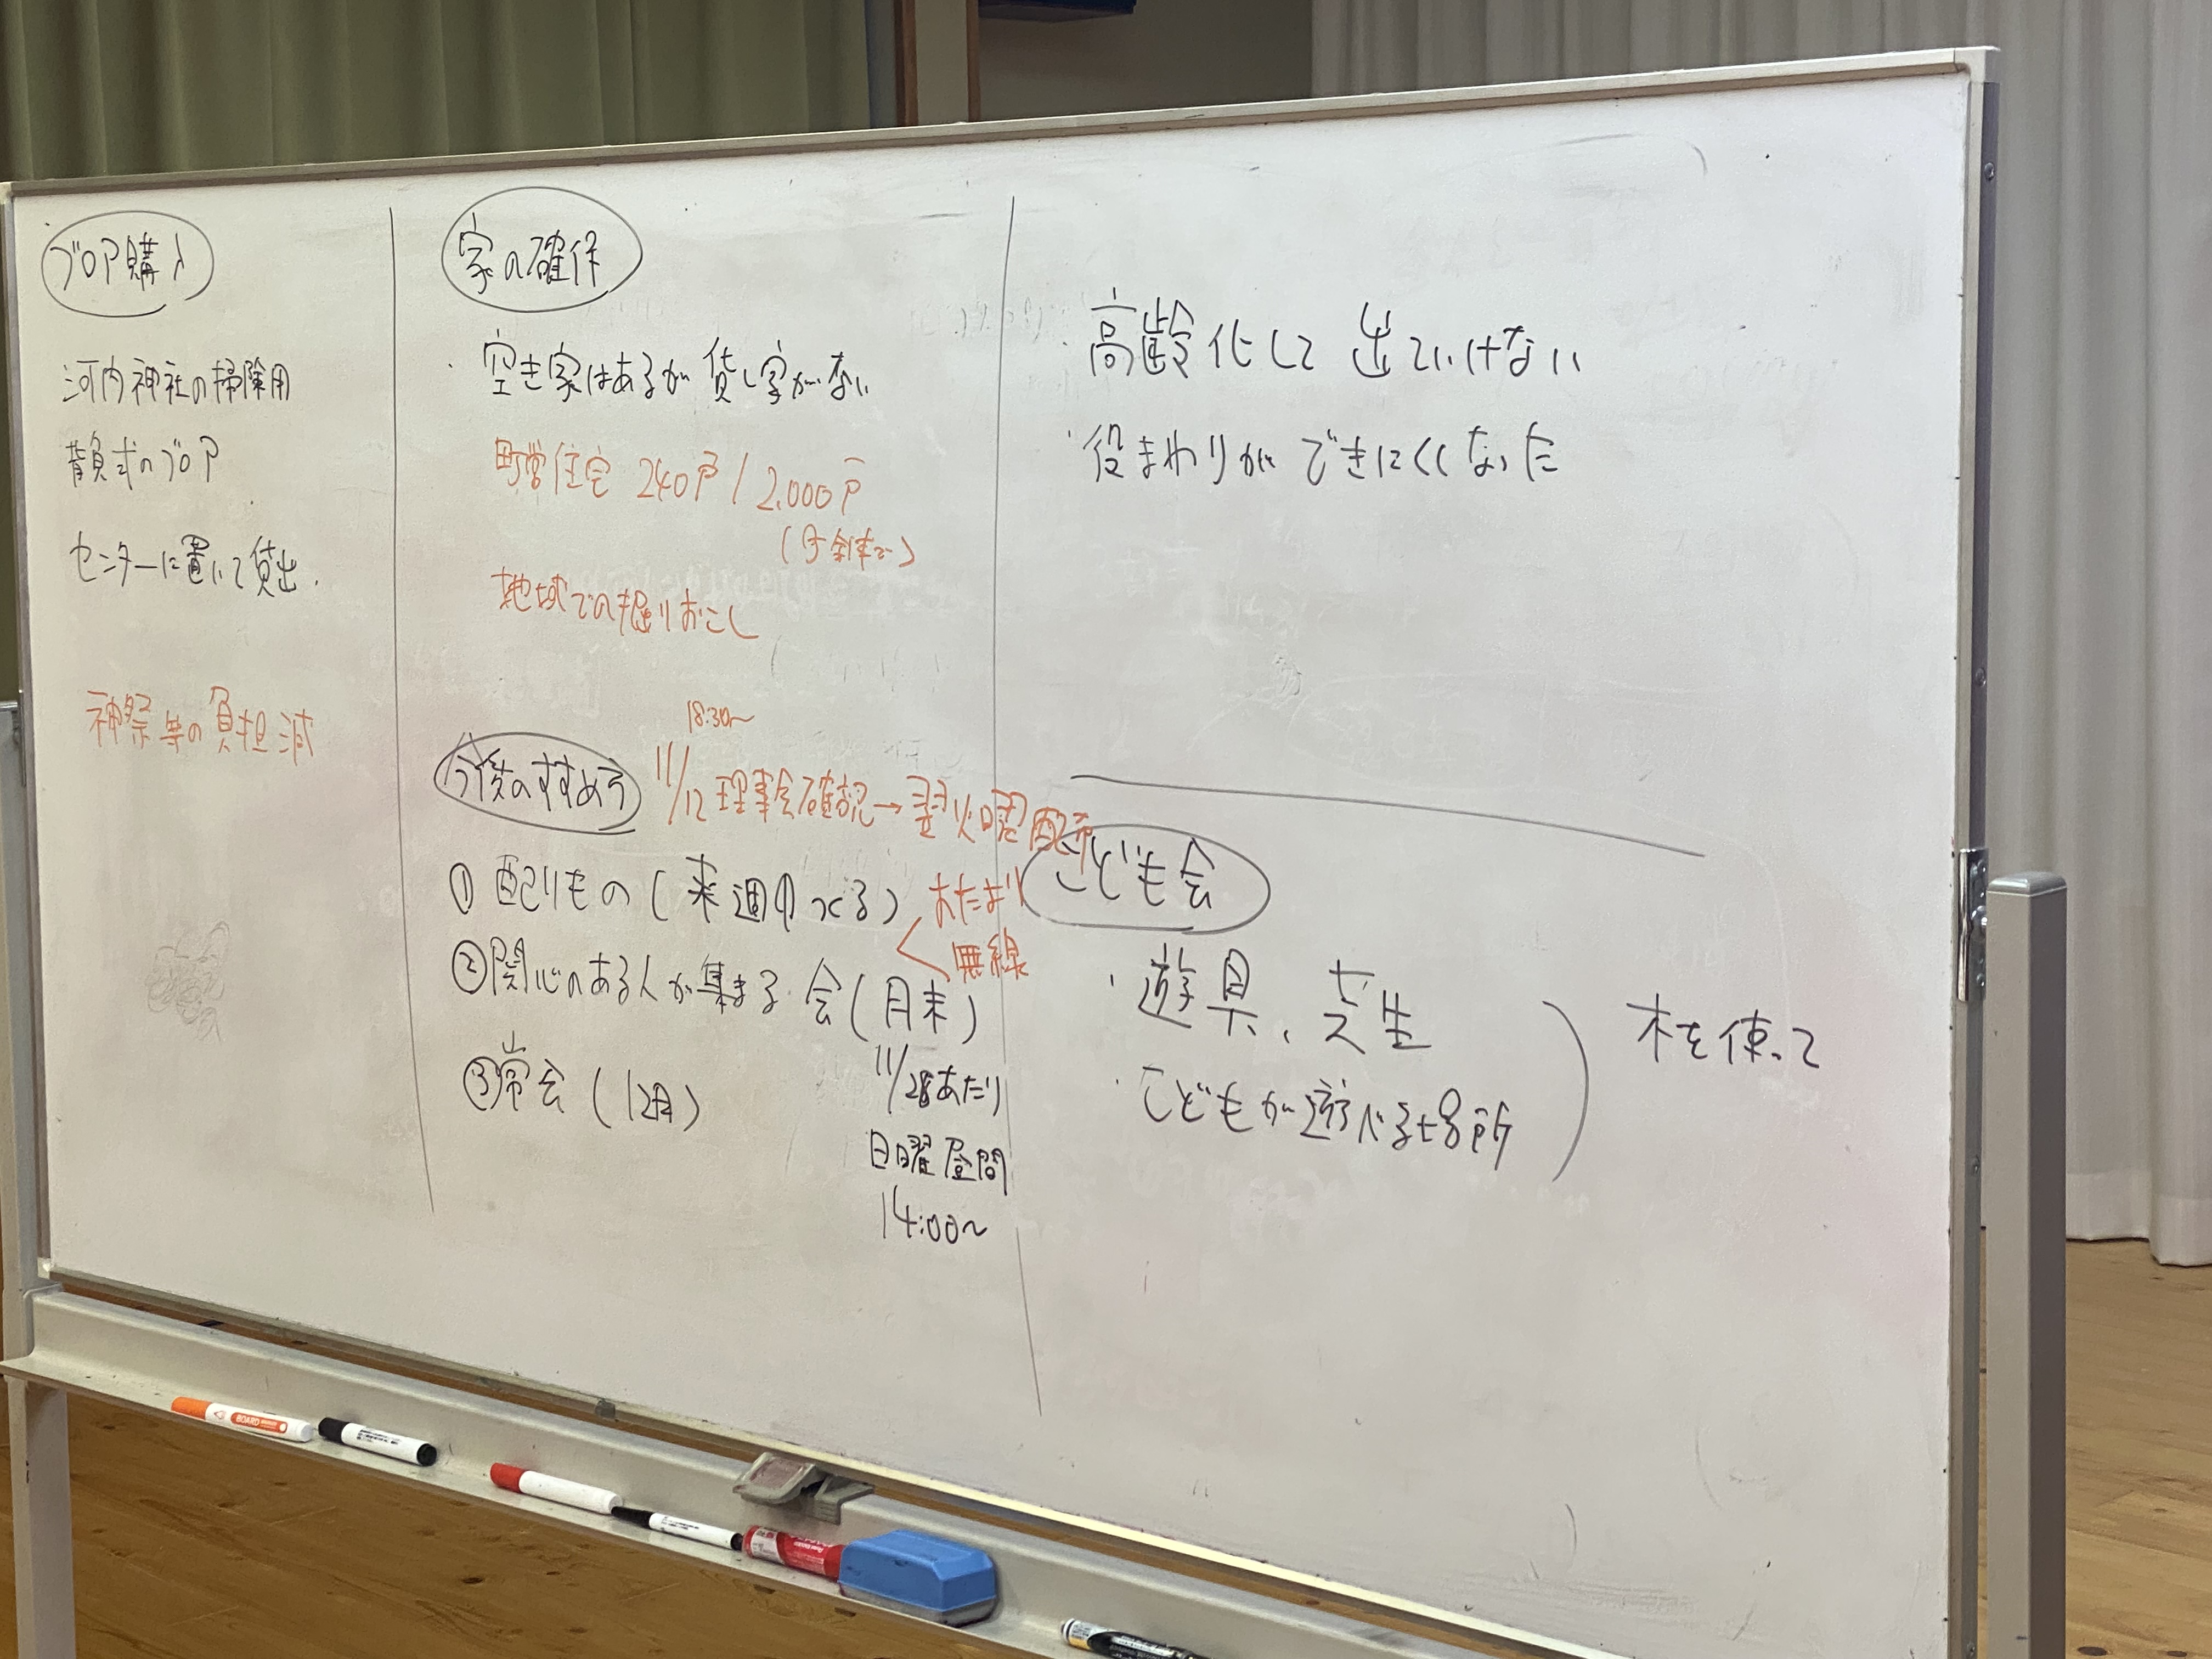 ブロア購入
河内神社の掃除用
背負式のブロア
センターに置いて貸出.
神祭等の負担減
家の確保
・空き家はあるが貸し家がない
町営住宅 240戸/2,000戸
(町全体で)
地域での掘りおこし
18:30〜
今後のすすめ方
11/12 理事会確認→翌火曜配布
①配りもの(来週中つくる)
おたより
無線
②関心のある人が集まる会(月末)
11/28あたり
日曜昼間
14:00〜
③常会(12月)
・高齢化して出ていけない
・役まわりができにくくなった
こども会
・遊具、芝生
・こどもが遊べる場所
木を使って
BOARD